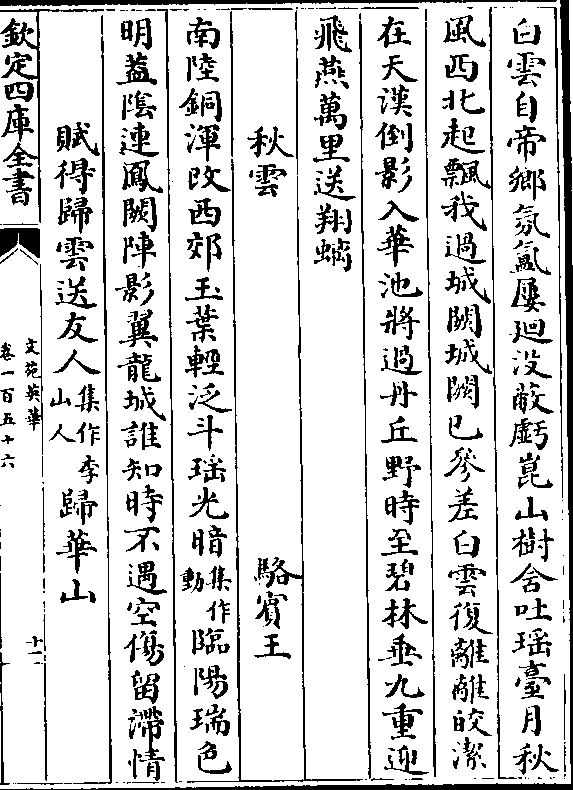 白雲自帝鄉氛氳屢迴没蔽虧崑山樹含吐瑶臺月秋
風西北起飄我過城闕城闕已參差白雲復離離皎潔
在天漢倒影入華池將過丹丘野時至碧林垂九重迎
飛燕萬里送翔螭
秋雲 駱賓王
南陸銅渾改西郊玉葉輕泛斗瑶光暗集作動臨陽瑞色
明葢陰連鳳闕陣影翼龍城誰知時不遇空傷留滯情
賦得歸雲送友人集作李山人歸華山
欽定四庫全書
文苑英華
卷一百五十六
十一